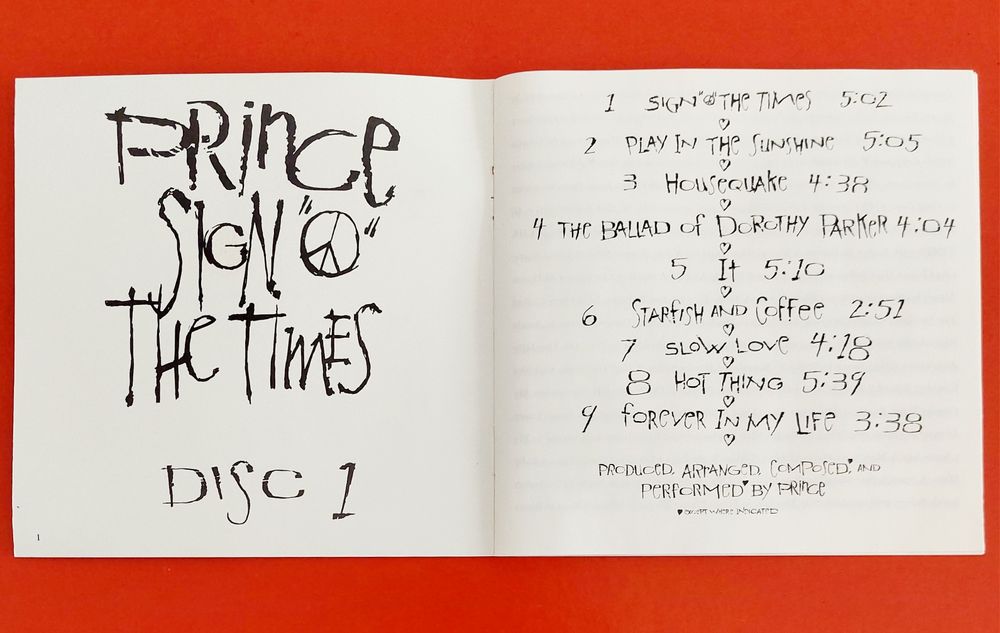 PRINCE
SIGN "☮"
THE TIMES
DISC 1
1
1 SIGN "☮" THE TIMES 5:02
♡
2 PLAY IN THE SUNSHINE 5:05
♡
3 HOUSEQUAKE 4:38
♡
4 THE BALLAD of DOROTHY PARKER 4:04
♡
5 It 5:10
♡
6 STARFISH AND COFFEE 2:51
♡
7 SLOW LOVE 4:18
♡
8 HOT THING 5:39
♡
9 FOREVER IN MY LIFE 3:38
♡
PRODUCED, ARRANGED, COMPOSED♥, AND
PERFORMED♥ BY PRINCE
♥ EXCEPT WHERE INDICATED